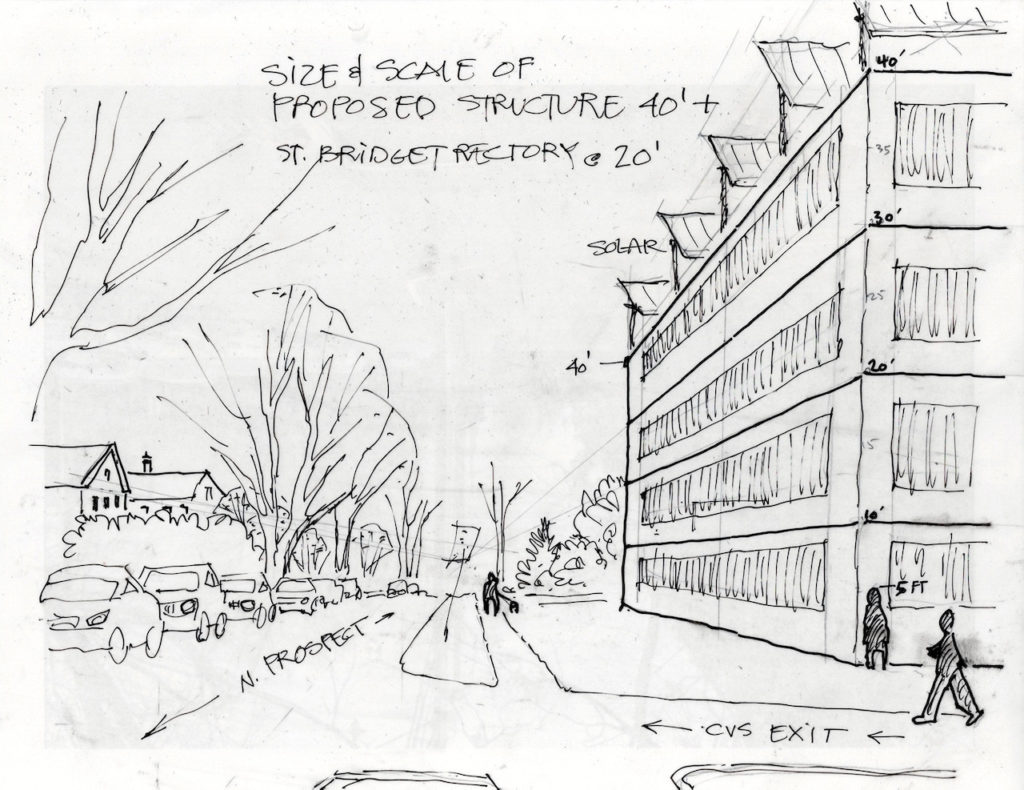 SIZE & SCALE OF
PROPOSED STRUCTURE 40'+
ST. BRIDGET RECTORY @ 20'
40'
35
30'
SOLAR
25
40'
20'
15
10'
5 FT
N. PROSPECT
← CVS EXIT ←